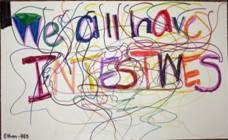 We all have
INTESTINES
Ethan-BES